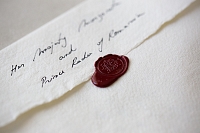 Her Majesty Margareta
and
Prince Radu of Romania